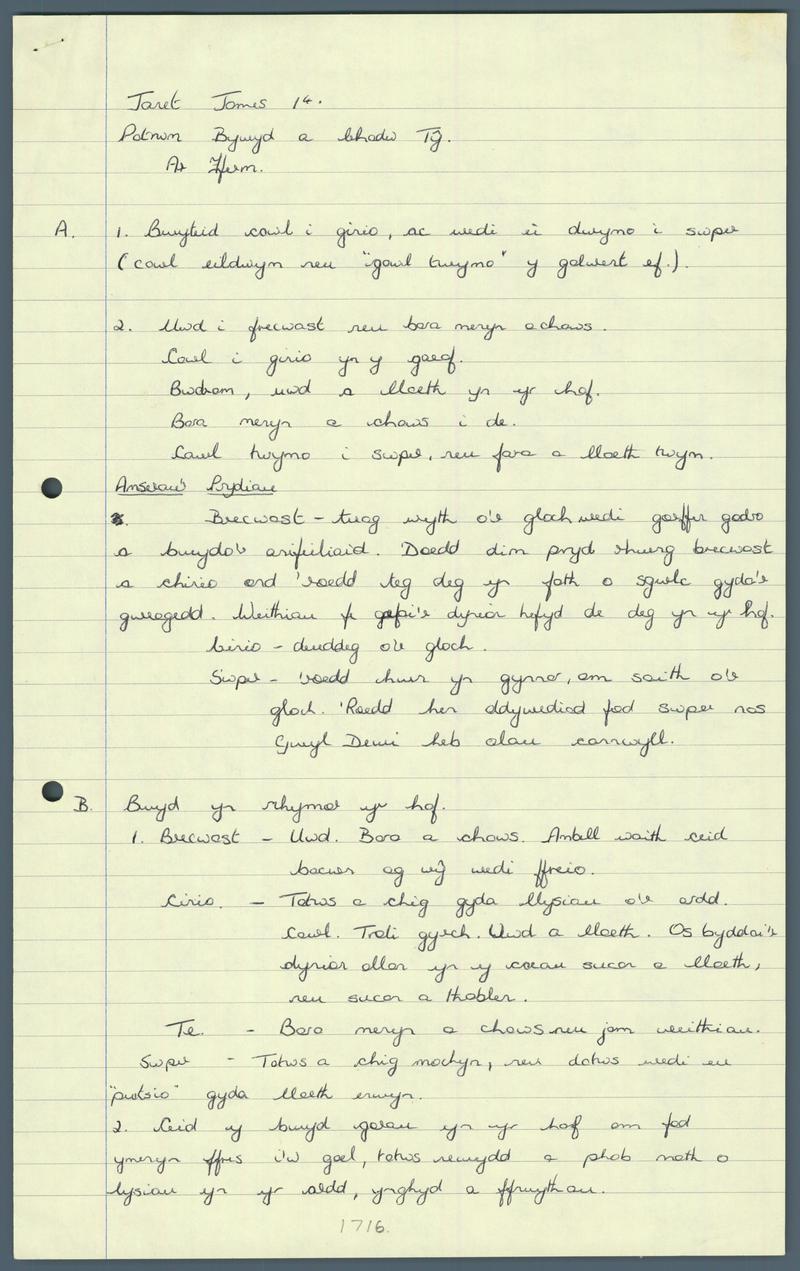 Janet James 14.
Patrwm Bywyd a Chadw Tŷ.
Ar Fferm.
A. 1. Bwyteid cawl i ginio, ac wedi ei dwymo i swper
(cawl eildwym neu "gawl twymo" y galwent ef.).
2. Uwd i frecwast neu bara menyn a chaws.
Cawl i ginio yn y gaeaf.
Bwdram, uwd a llaeth yn yr haf.
Bara menyn a chaws i de.
Cawl twymo i swper, neu fara a llaeth twym.
Amserau'r Prydiau
Brecwast - tuag wyth o'r gloch wedi gorffen godro
a bwydo'r anifeiliaid. Doedd dim pryd rhwng brecwast
a chinio ond 'roedd teg deg yn fath o sgwlc gyda'r
gwragedd. Weithiau fe gafai'r dynion hefyd de deg yn yr haf.
Cinio - deuddeg o'r gloch.
Swper - 'roedd hwn yn gynnar, am saith o'r
gloch. 'Roedd hen ddywediad fod swper nos
Gwyl Dewi heb olau cannwyll.
B. Bwyd yn nhymor yr haf.
1. Brecwast - Uwd. Bara a chaws. Ambell waith ceid
bacwn ag wŷ wedi ffreio.
Cinio. - Tatws a chig gyda llysiau o'r ardd.
Cawl. Troli gyrch. Uwd a llaeth. Os byddai'r
dynion allan yn y caeau sucan a llaeth,
neu sucan a thabler.
Te. - Bara menyn a chaws neu jam weithiau.
Swper - Tatws a chig mochyn, neu datws wedi eu
"putsio" gyda llaeth enwyn.
2. Ceid y bwyd gorau yn yr haf am fod
ymenyn ffres i'w gael, tatws newydd a phob math o
lysiau yn yr ardd, ynghyd a ffrwythau.
1716.